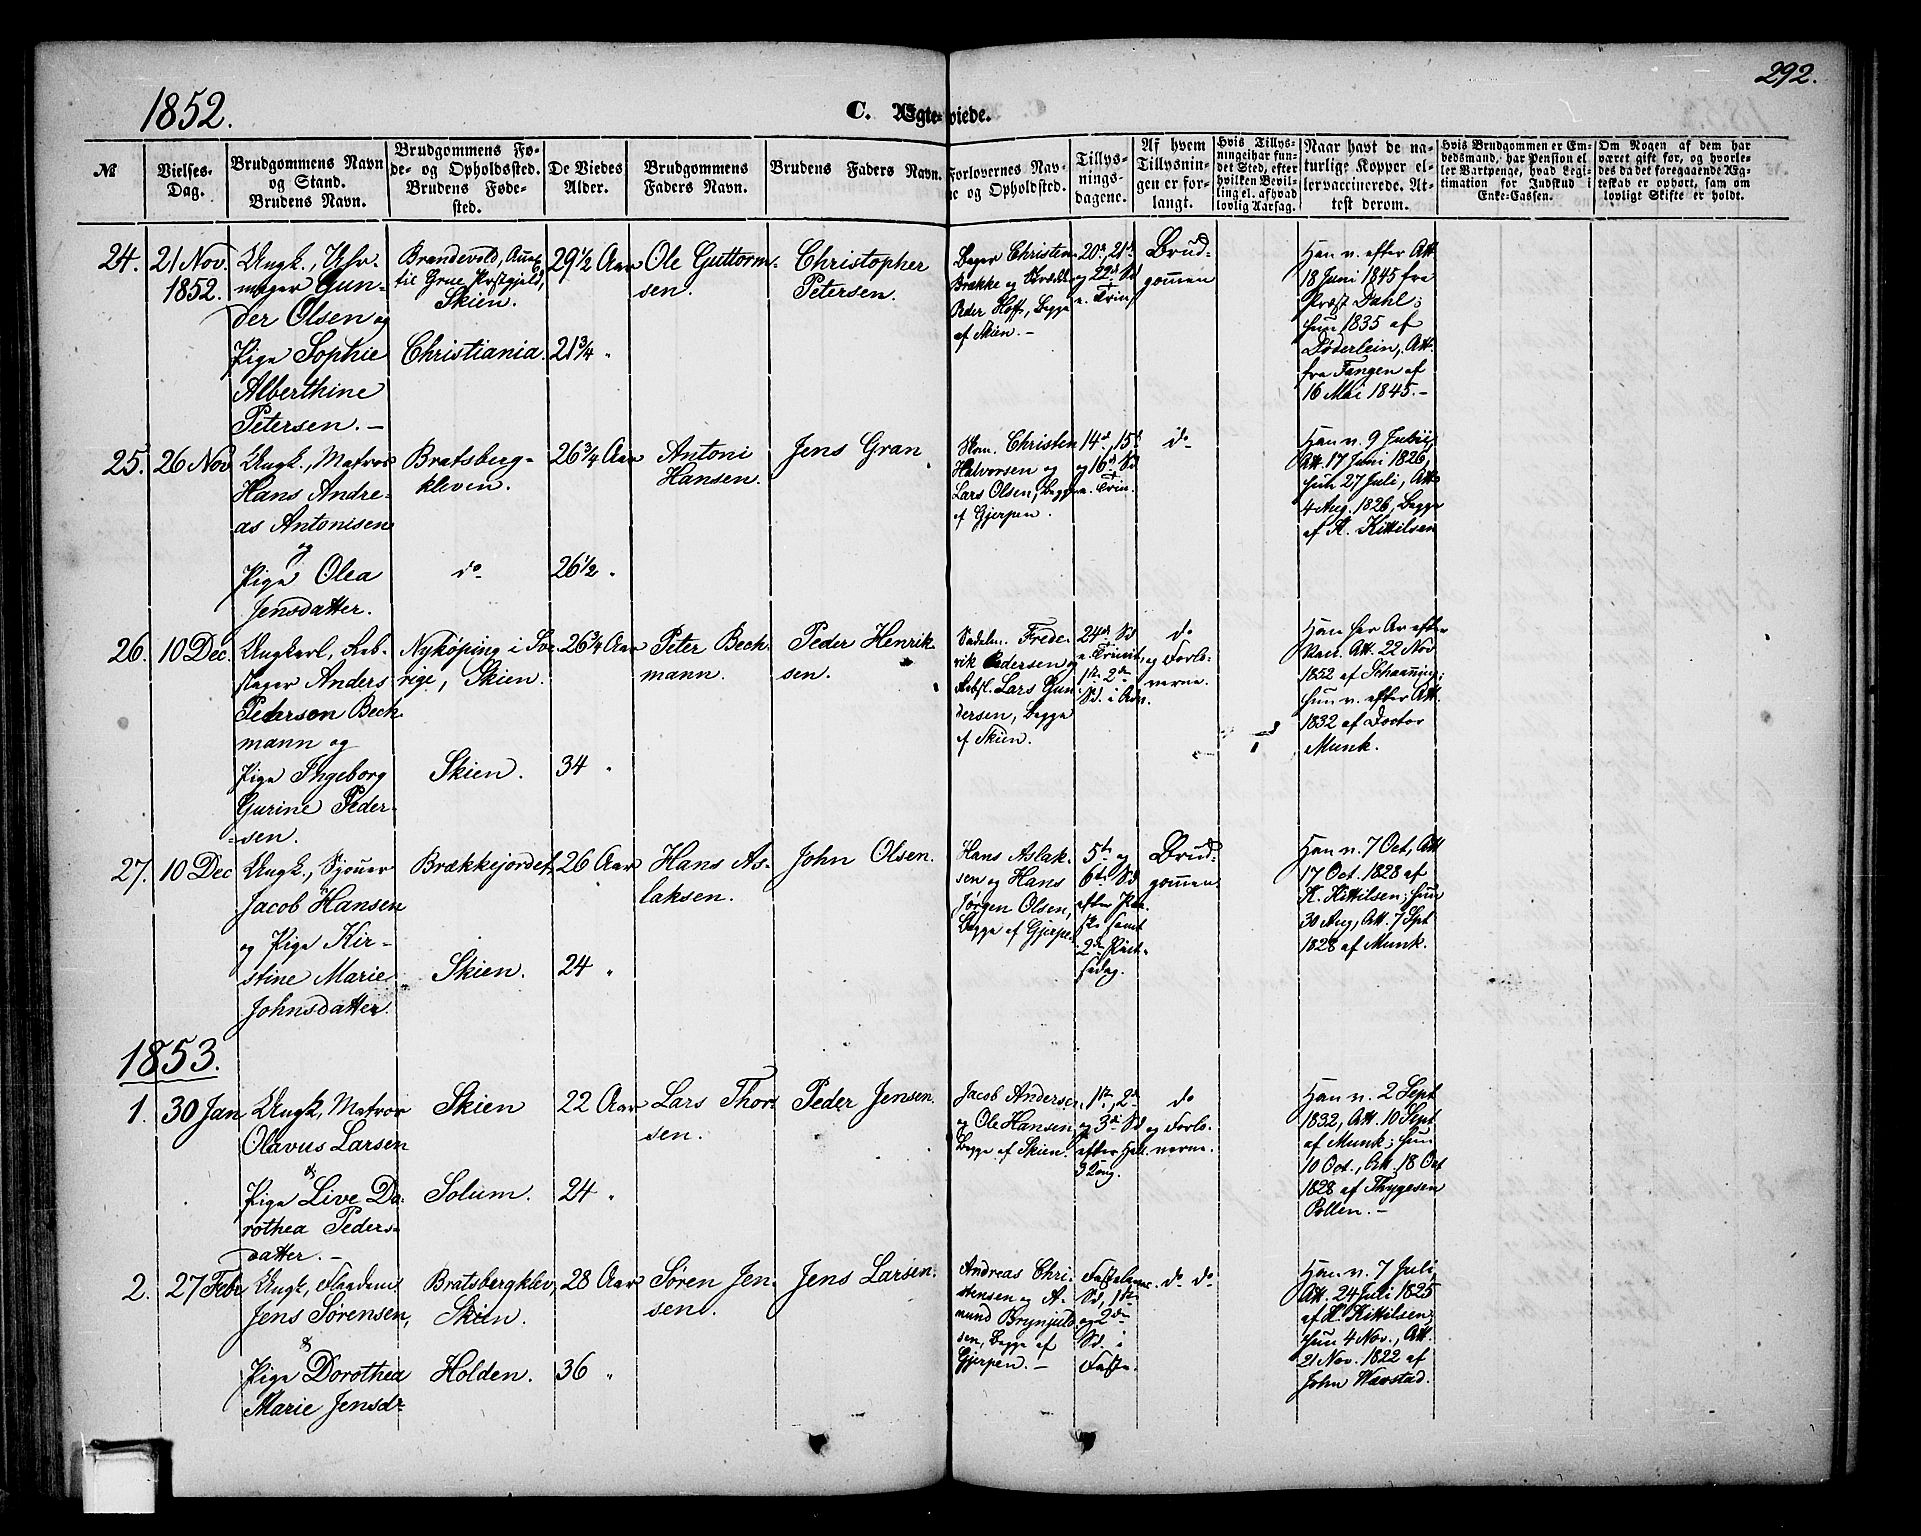 292.
1852.
C. Ægteviede.
№
Vielses-
Dag.
Brudgommens Navn
og Stand.
Brudens Navn.
Brudgommens Fø-
de- og Opholdssted.
Brudens Føde-
sted.
De Viedes
Alder.
Brudgommens
Faders Navn.
Brudens Faders Navn.
Forlovernes Nav-
ne og Opholdsted.
Tillys-
nings-
dagene.
Af hvem
Tillysnin-
gen er for-
langt.
Hvis Tillys-
ningei har fun-
det Sted, efter
hvilken Bevil-
ling el. afhvad
lovlig Aarsag.
Naar havt de na-
turlige Kopper el-
ler vaccinerede. At-
test derom.
Hvis Brudgommen er Em-
bedsmand, har Pension el-
ler Vartpenge, hvad Legi-
timation for Indskud i
Enke-Cassen.
Om Nogen af dem har
været gift før, og hvorle-
des da det foregaaende Æg-
teskab er ophørt, sam om
lovligt Skifte er holdt.
24.
21 Nov.
1852.
Ungk., Uhr-
mager Gun-
der Olsen og
Pige Sophie
Alberthine
Petersen. —
Brandevold, Annex
til Grue Præstgjeld,
Skien.
Christiania.
29 1/2 Aar
21 3/4 "
Ole Guttorm-
sen.
Christopher
Petersen.
Bager Christian
Brække og
Peder Hoff, begge
af Skien. —
20de, 21de
og 22de Sd
e. Trin.
Brud-
gommen
Han v. efter Att.
18 Juni 1845 fra
Præst Dahl;
hun 1835 af
Døderlein, Att.
fra Fangen af
16 Mai 1845. —
25.
26 Nov
Ungk., Matros
Hans Andre-
as Antonisen
og
Pige Olea
Jensdatter.
Bratsberg-
kleven.
do
26 3/4 Aar
26 1/2 "
Antoni
Hansen.
Jens Gran
Skom. Christen
Halvorsen og
Lars Olsen, begge
af Gjerpen.
14de, 15de
og 16de Sd
e. Trin.
do
Han v. 9 Juni,
Att. 17 Juni 1826,
hun 27 Juli, Att.
4 Aug. 1826, begge
af K. Kittilsen
26.
10 Dec.
Ungkarl, Reb-
slager Anders
Pedersen Beck-
mann og
Pige Ingeborg
Gurine Peder-
sen.
Nykøping i Sve-
rige, Skien.
Skien.
26 3/4 Aar
34 "
Peter Beck-
mann.
Peder Henrik-
sen.
Sadelm. Frede-
rik Pedersen og
Rebsl. Lars Gun-
dersen, begge
af Skien.
24de Sd
e. Trinit.,
1ste, 2den
Sd. i Adv.
do
og Forlo-
verne.
Han har Ar efter
Vacc. Att. 22 Nov
1852 af Schanning;
hun v. efter Att.
1832 af Doctor
Munk.
27.
10 Dec
Ungk., Sjouer
Jacob Hansen
og Pige Kir-
stine Marie
Johnsdatter.
Brækkejordet,
Skien.
26 Aar
24 "
Hans As-
laksen.
John Olsen.
Hans Aslak-
sen og Hans
Jørgen Olsen,
begge af Gjerpe.
5te og
6te Sd
efter Paa-
ske samt
2den Pint-
sedag.
Brud-
gommen
Han v. 7 Oct, Att
17 Oct. 1828 af
K. Kittilsen; hun
30 Aug, Att. 7 Spt
1828 af Munk.
1853.
1.
30 Jan
Ungk, Matros
Olavus Larsen
&
Pige Live Do-
rothea Peders-
datter. —
Skien
Solum.
22 Aar
24 "
Lars Thor-
sen.
Peder Jensen.
Jacob Andersen
og Ole Hansen,
begge af Skien.
1ste, 2den
og 3die Sd
efter Hell.
3 Kong.
do
og Forlo-
verne.
Han v. 2 Sept
1832, Att. 10 Sept
af Munk; hun
10 Oct., Att. 18 Oct
1828 af Thygesen
Pollen. —
2.
27 Febr
Ungk, Flaadem.
Jens Sørensen,
&
Pige Dorothea
Marie Jensdr
Bratsbergklev,
Skien.
Holden.
28 Aar
36 "
Søren Jen-
sen.
Jens Larsen.
Andreas Chri-
stensen og A-
mund Brynjuld-
sen, begge af
Gjerpen. —
Fastelavns
Sd, 1ste
og 2den
Sd. i
Faste.
do do
Han v. 7 Juli,
Att. 24 Juli 1825
af K. Kittilsen;
hun 4 Nov., Att.
21 Nov. 1822 af
John Waestad.